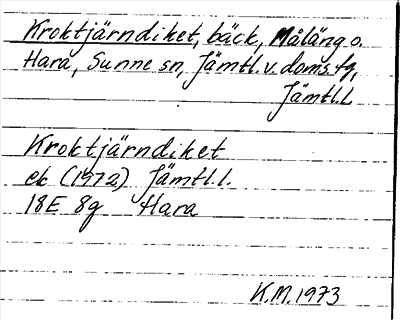 Kroktjärndiket, bäck, Måläng o.
Hara, Sunne sn, Jämtl. v. doms. tg,
Jämtl.l.
Kroktjärndiket
ek (1972) Jämtl.l.
18E 8g Hara
K.M. 1973